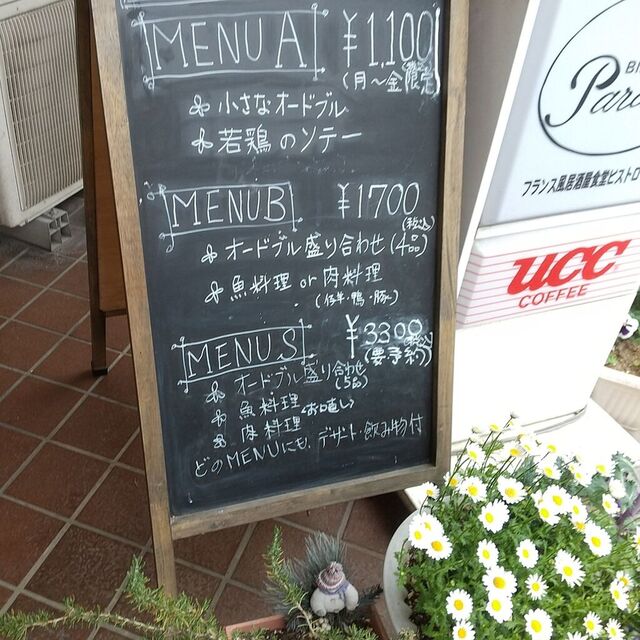 MENU A ¥1,100
(月〜金限定)
小さなオードブル
若鶏のソテー
MENU B ¥1700
(税込)
オードブル盛り合わせ(4品)
魚料理 or 肉料理
(仔羊・鴨・豚)
MENU S ¥3300
(要予約)
オードブル盛り合わせ
(5品)
魚料理 (お口直し)
肉料理
どのMENUにも、デザート・飲み物付
フランス風居酒屋食堂ビストロ
UCC
COFFEE